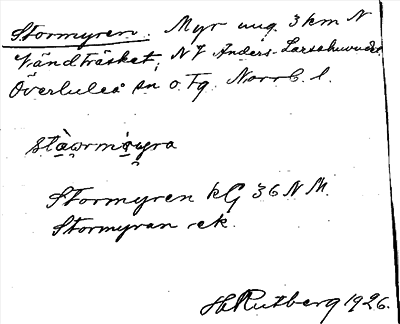 Stormyren. Myr ung. 3 km N
Vändträsket, NV Anders-Larsehuvudet
Överluleå sn o. Tg. Norrb. l.
stàọrmỵ́ra
Stormyren kG 36 N M.
Stormyran ek.
H Rutberg 1926.